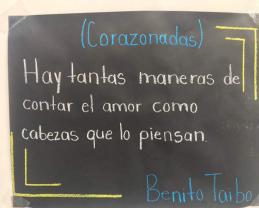 (Corazonadas)
Hay tantas maneras de
contar el amor como
cabezas que lo piensan.
Benito Taibo